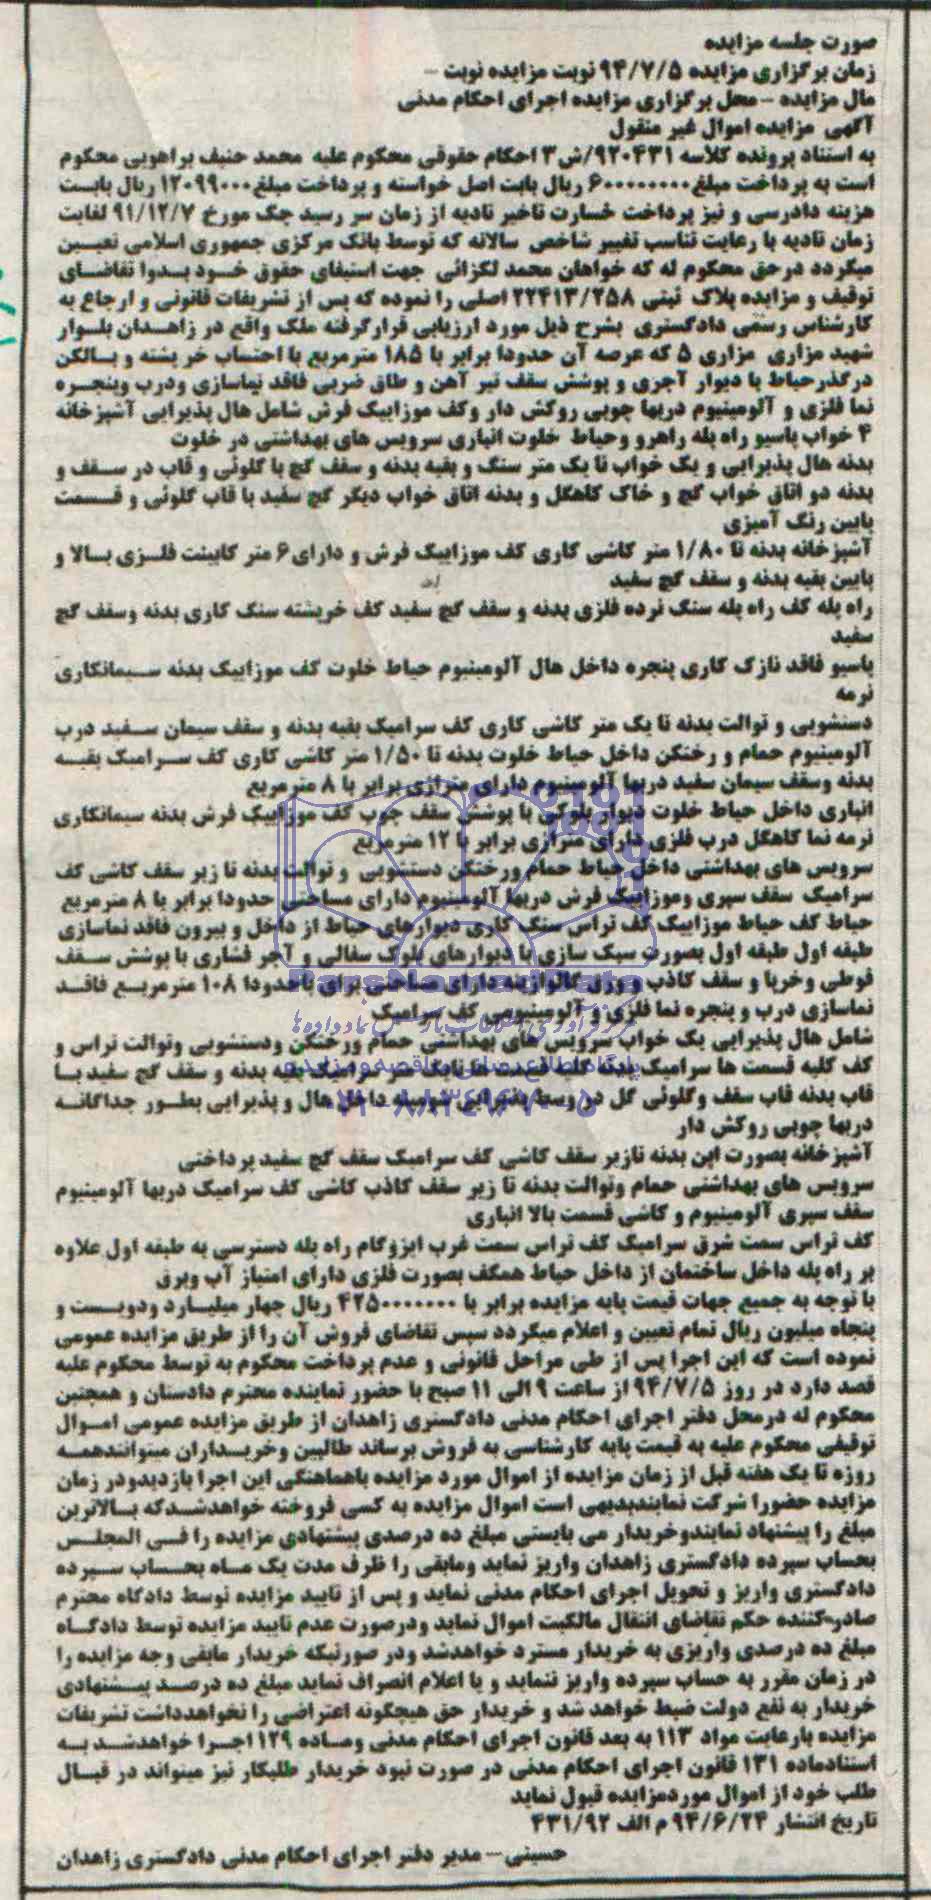 صورت جلسه مزایده
زمان برگزاری مزایده ۹۴/۷/۵ نوبت مزایده نوبت –
مال مزایده – محل برگزاری مزایده اجرای احکام مدنی
آگهی مزایده اموال غیر منقول
به استناد پرونده کلاسه ۹۲۰۴۳۱/ش ۳ احکام حقوقی محکوم علیه محمد حنیف براهویی محکوم
است به پرداخت مبلغ ۶۰۰۰۰۰۰۰۰ ریال بابت اصل خواسته و پرداخت مبلغ ۱۲۰۹۹۰۰۰ ریال بابت
هزینه دادرسی و نیز پرداخت خسارت تاخیر تادیه از زمان سر رسید چک مورخ ۹۱/۱۲/۷ لغایت
زمان تادیه با رعایت تناسب تغییر شاخص سالانه که توسط بانک مرکزی جمهوری اسلامی تعیین
میگردد درحق محکوم له که خواهان محمد لکزائی جهت استیفای حقوق خود بدوا تقاضای
توقیف و مزایده پلاک ثبتی ۲۲۴۱۳/۲۵۸ اصلی را نموده که پس از تشریفات قانونی و ارجاع به
کارشناس رسمی دادگستری بشرح ذیل مورد ارزیابی قرارگرفته ملک واقع در زاهدان بلوار
شهید مزاری مزاری ۵ که عرصه آن حدودا برابر با ۱۸۵ مترمربع با احتساب خر پشته و بالکن
درگذرحیاط با دیوار آجری و پوشش سقف تیر آهن و طاق ضربی فاقد نماسازی ودرب وپنجره
نما فلزی و آلومینیوم دربها چوبی روکش دار وکف موزاییک فرش شامل هال پذیرایی آشپزخانه
۴ خواب پاسیو راه پله راهرو وحیاط خلوت انباری سرویس های بهداشتی در خلوت
بدنه هال پذیرایی و یک خواب تا یک متر سنگ و بقیه بدنه و سقف گچ با گلوئی و قاب در سقف و
بدنه دو اتاق خواب گچ و خاک کاهگل و بدنه اتاق خواب دیگر گچ سفید با قاب گلوئی و قسمت
پایین رنگ آمیزی
آشپزخانه بدنه تا ۱/۸۰ متر کاشی کاری کف موزاییک فرش و دارای ۶ متر کابینت فلزی بالا و
پایین بقیه بدنه و سقف گچ سفید
راه پله کف راه پله سنگ نرده فلزی بدنه و سقف گچ سفید کف خرپشته سنگ کاری بدنه وسقف گچ
سفید
پاسیو فاقد نازک کاری پنجره داخل هال آلومینیوم حیاط خلوت کف موزاییک بدنه سیمانکاری
نرمه
دستشویی و توالت بدنه تا یک متر کاشی کاری کف سرامیک بقیه بدنه و سقف سیمان سفید درب
آلومینیوم حمام و رختکن داخل حیاط خلوت بدنه تا ۱/۵۰ متر کاشی کاری کف سرامیک بقیه
بدنه وسقف سیمان سفید دربها آلومینیوم دارای متراژی برابر با ۸ مترمربع
انباری داخل حیاط خلوت دیوار بلوکی با پوشش سقف چوب کف موزاییک فرش بدنه سیمانکاری
نرمه نما کاهگل درب فلزی دارای متراژی برابر با ۱۲ مترمربع
سرویس های بهداشتی داخل حیاط حمام ورختکن دستشویی و توالت بدنه تا زیر سقف کاشی کف
سرامیک سقف سپری وموزاییک فرش دربها آلومینیوم دارای مساحتی حدودا برابر با ۸ مترمربع
حیاط کف حیاط موزاییک کف تراس سنگ کاری دیوارهای حیاط از داخل و بیرون فاقد نماسازی
طبقه اول طبقه اول بصورت سبک سازی با دیوارهای بلوک سفالی و آجر فشاری با پوشش سقف
قوطی وخرپا و سقف کاذب و ورق گالوانیزه دارای مساحتی برای باحدودا ۱۰۸ مترمربع فاقد
نماسازی درب و پنجره نما فلزی و آلومینیومی کف سرامیک
شامل هال پذیرایی یک خواب سرویس های بهداشتی حمام ورختکن ودستشویی وتوالت تراس و
کف کلیه قسمت ها سرامیک بدنه کلیه قسمت ها تایک متر سرامیک بقیه بدنه و سقف گچ سفید با
قاب بدنه قاب سقف وگلوئی گل در وسط پذیرایی شومینه داخل هال و پذیرایی بطور جداگانه
دربها چوبی روکش دار
آشپزخانه بصورت اپن بدنه تازیر سقف کاشی کف سرامیک سقف گچ سفید پرداختی
سرویس های بهداشتی حمام وتوالت بدنه تا زیر سقف کاذب کاشی کف سرامیک دربها آلومینیوم
سقف سپری آلومینیوم و کاشی قسمت بالا انباری
کف تراس سمت شرق سرامیک کف تراس سمت غرب ایزوگام راه پله دسترسی به طبقه اول علاوه
بر راه پله داخل ساختمان از داخل حیاط همکف بصورت فلزی دارای امتیاز آب وبرق
با توجه به جمیع جهات قیمت پایه مزایده برابر با ۴۲۵۰۰۰۰۰۰۰ ریال چهار میلیارد ودویست و
پنجاه میلیون ریال تمام تعیین و اعلام میگردد سپس تقاضای فروش آن را از طریق مزایده عمومی
نموده است که این اجرا پس از طی مراحل قانونی و عدم پرداخت محکوم به توسط محکوم علیه
قصد دارد در روز ۹۴/۷/۵ از ساعت ۹ الی ۱۱ صبح با حضور نماینده محترم دادستان و همچنین
محکوم له درمحل دفتر اجرای احکام مدنی دادگستری زاهدان از طریق مزایده عمومی اموال
توقیفی محکوم علیه به قیمت پایه کارشناسی به فروش برساند طالبین وخریداران میتوانندهمه
روزه تا یک هفته قبل از زمان مزایده از اموال مورد مزایده باهماهنگی این اجرا بازدیدودر زمان
مزایده حضورا شرکت نمایندبدیهی است اموال مزایده به کسی فروخته خواهدشدکه بالاترین
مبلغ را پیشنهاد نمایندوخریدار می بایستی مبلغ ده درصدی پیشنهادی مزایده را فی المجلس
بحساب سپرده دادگستری زاهدان واریز نماید ومابقی را ظرف مدت یک ماه بحساب سپرده
دادگستری واریز و تحویل اجرای احکام مدنی نماید و پس از تایید مزایده توسط دادگاه محترم
صادرکننده حکم تقاضای انتقال مالکیت اموال نماید ودرصورت عدم تایید مزایده توسط دادگاه
مبلغ ده درصدی واریزی به خریدار مسترد خواهدشد ودر صورتیکه خریدار مابقی وجه مزایده را
در زمان مقرر به حساب سپرده واریز ننماید و یا اعلام انصراف نماید مبلغ ده درصد پیشنهادی
خریدار به نفع دولت ضبط خواهد شد و خریدار حق هیچگونه اعتراضی را نخواهدداشت تشریفات
مزایده بارعایت مواد ۱۱۳ به بعد قانون اجرای احکام مدنی وماده ۱۲۹ اجرا خواهدشد به
استنادماده ۱۳۱ قانون اجرای احکام مدنی در صورت نبود خریدار طلبکار نیز میتواند در قبال
طلب خود از اموال موردمزایده قبول نماید
تاریخ انتشار ۹۴/۶/۲۴ م الف ۴۳۱/۹۲
حسینی – مدیر دفتر اجرای احکام مدنی دادگستری زاهدان
ParsNamadData
پایگاه اطلاع رسانی مناقصه و مزایده
۰۲۱-۸۸۳۴۹۶۷۰-۵